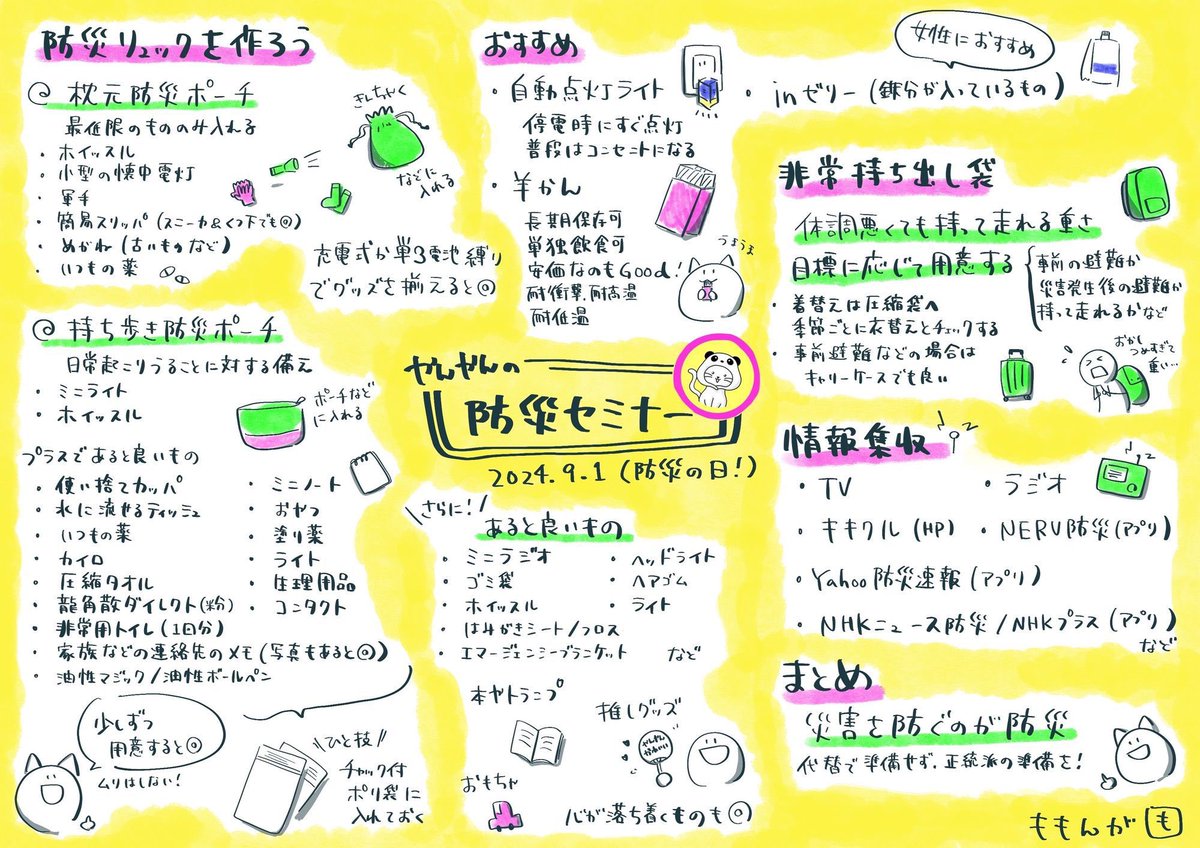 防災リュックを作ろう
枕元防災ポーチ
最低限のもののみ入れる
・ホイッスル
・小型の懐中電灯
・軍手
・簡易スリッパ(スニーカ&くつ下でも◎)
・めがね(古いものなど)
・いつもの薬
きんちゃく
などに
入れる
充電式か単3電池縛り
でグッズを揃えると◎
持ち歩き防災ポーチ
日常起こりうることに対する備え
・ミニライト
・ホイッスル
ポーチなど
に入れる
プラスであると良いもの
・使い捨てカッパ
・水に流せるティッシュ
・いつもの薬
・カイロ
・圧縮タオル
・龍角散ダイレクト(粉)
・非常用トイレ(1回分)
・家族などの連絡先のメモ(写真もあると◎)
・油性マジック/油性ボールペン
・ミニノート
・おやつ
・塗り薬
・ライト
・生理用品
・コンタクト
少しずつ
用意すると◎
ムリはしない!
\\ひと技//
チャック付
ポリ袋に
入れておく
おすすめ
・自動点灯ライト
停電時にすぐ点灯
普段はコンセントになる
・羊かん
長期保存可
単独飲食可
安価なのもGood!
耐衝撃、耐高温
耐低温
うまうま
女性におすすめ
・inゼリー(鉄分が入っているもの)
やんやんの
防災セミナー
2024.9.1(防災の日!)
\さらに!/
あると良いもの
・ミニラジオ
・ゴミ袋
・ホイッスル
・はみがきシート/フロス
・エマージェンシーブランケット
・ヘッドライト
・ヘアゴム
・ライト
など
本やトランプ
推しグッズ
やんやん
かわいい
おもちゃ
心が落ち着くものも◎
非常持ち出し袋
体調悪くても持って走れる重さ
目標に応じて用意する
事前の避難か
災害発生後の避難か
持って走れるかなど
・着替えは圧縮袋へ
季節ごとに衣替えとチェックする
・事前避難などの場合は
キャリーケースでも良い
おかし
つめすぎて
重い…
情報集収
・TV
・ラジオ
・キキクル(HP)
・NERV防災(アプリ)
・Yahoo防災速報(アプリ)
・NHKニュース防災/NHKプラス(アプリ)
など
まとめ
災害を防ぐのが防災
代替で準備せず、正統派の準備を!
ももんが も